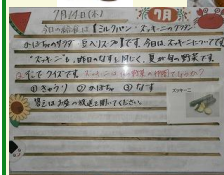 7月14日(木)
7月
今日の給食は、ミルクパン・ズッキーニのグラタン
かぼちゃのサラダ・豆入りスープです。今日は、ズッキーニについてです。
"ズッキーニ"も、昨日のなすと同じく、夏が旬の野菜です。
クイズです。ズッキーニは の野菜の仲間でしょうか？
①きゅうり ②かぼちゃ ③なす
答えはお昼の放送で聞いてください。
ズッキーニ